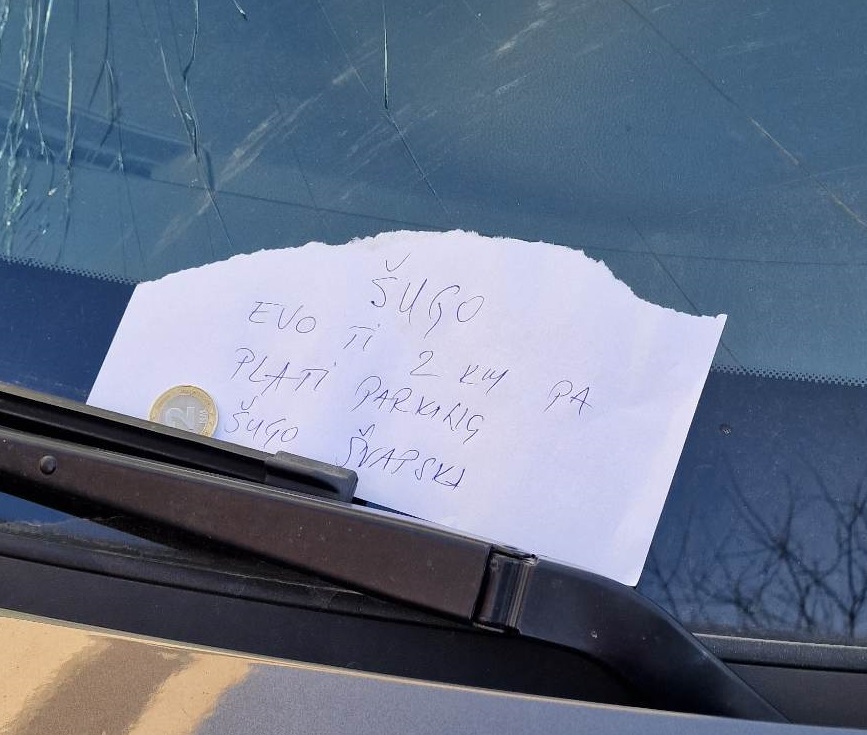 ŠUGO
EVO TI 2 KM PA
PLATI PARKING
ŠUGO ŠVAPSKA
2